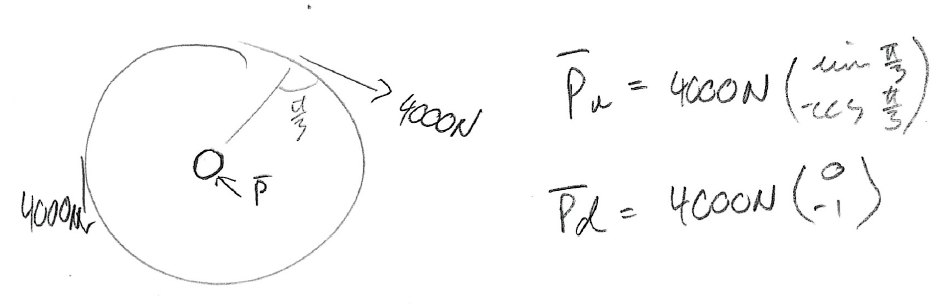 4000N
π/3
P̄
4000N
P̄u = 4000N (sin π/3
-cos π/3)
P̄d = 4000N (0
-1)